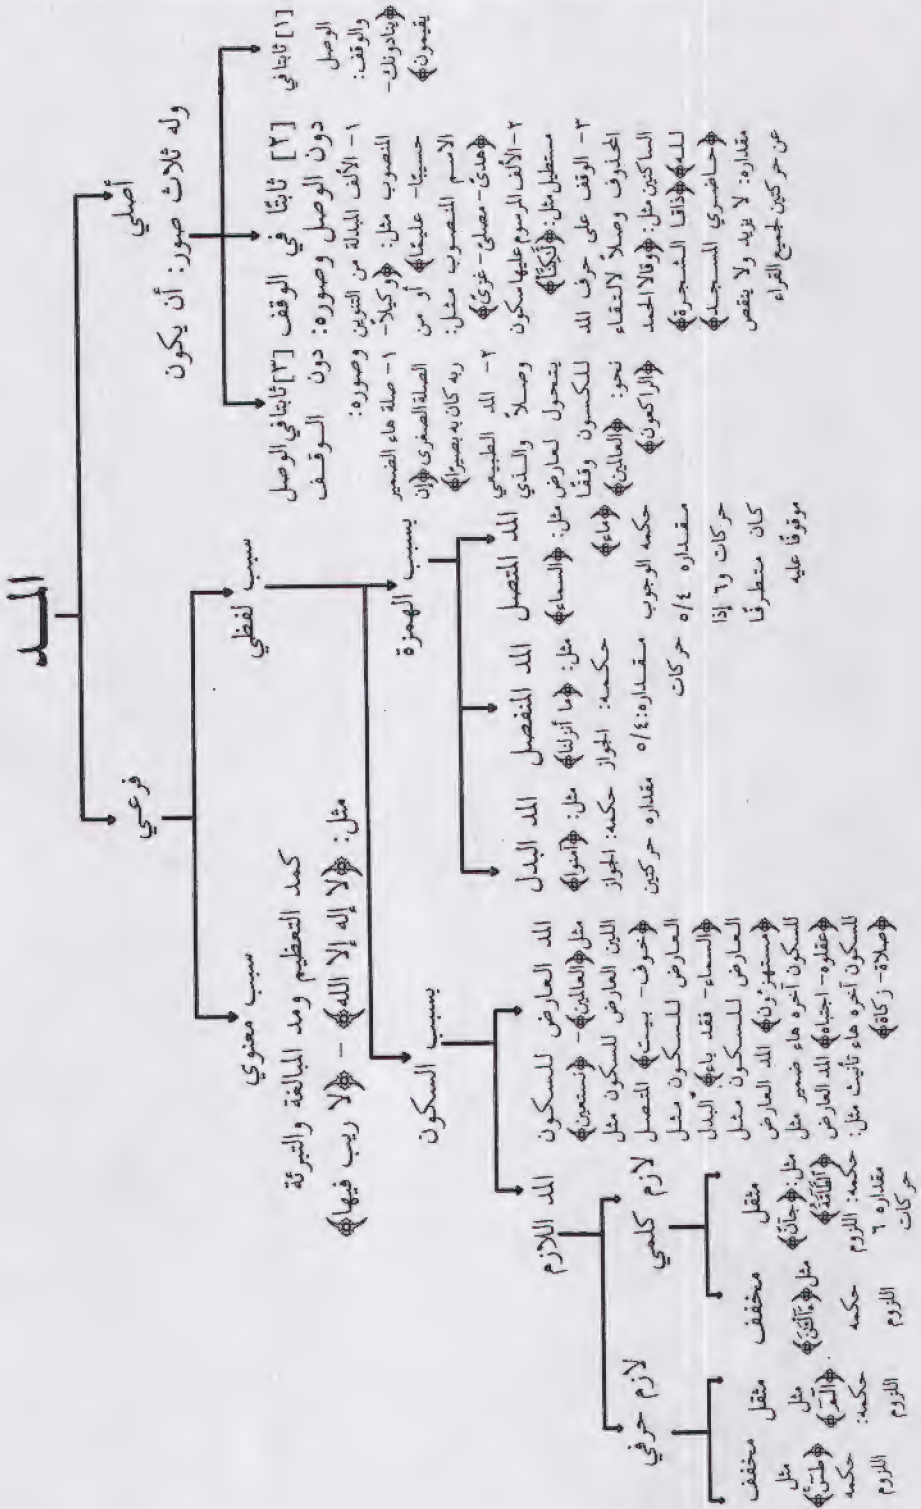 المــد
أصلي
وله ثلاث صور: أن يكون
[١] ثابتا في
الوصل
والوقف:
﴿ينادونك-
يقيمون﴾
[٢] ثابتًا في الوقف
دون الوصل وصوره:
١- الألف المبدلة من التنوين
المنصوب مثل: ﴿وكيلاً-
حسيبًا- عليمًا﴾ أو من
الاسم المنصوب مثل:
﴿هدىً- مصلىً- غزىً﴾
٢- الألف المرسوم عليها سكون
مستطيل مثل: ﴿لَّكِنَّا﴾
٣- الوقف على حرف المد
المحذوف وصلاً لالتقاء
الساكنين مثل: ﴿وقالا الحمد
لله﴾ ﴿ذاقا الشجرة﴾
﴿حاضري المسجد﴾
مقداره: لا يزيد ولا ينقص
عن حركتين لجميع القراء
[٣] ثابتا في الوصل
دون الوقف
وصوره:
١- صلة هاء الضمير
الصلة الصغرى ﴿إن
ربه كان به بصيرًا﴾
٢- المد الطبيعي
وصلاً والذي
يتحول لعارض
للكسون وقفًا
نحو: ﴿العالمين﴾
﴿الراكعون﴾
فرعي
سبب لفظي
بسبب الهمزة
المد المتصل
مثل: ﴿السماء﴾
﴿ماء﴾
حكمه الوجوب
مقداره ٥/٤
حركات و٦ إذا
كان متطرفًا
موقوفًا عليه
المد المنفصل
مثل: ﴿ما أنزلنا﴾
حكمه: الجواز
مقداره: ٥/٤
حركات
المد البدل
مثل: ﴿آمنوا﴾
حكمه: الجواز
مقداره حركتين
سبب معنوي
كمد التعظيم ومد المبالغة والتبرئة
مثل: ﴿لا إله إلا الله﴾ - ﴿لا ريب فيها﴾
بسبب السكون
المد العارض للسكون
مثل ﴿العالمين﴾ - ﴿نستعين﴾
اللين العارض للسكون مثل
﴿خوف- بيت﴾ المتصل
العارض للسكون مثل
﴿السماء- فقد باء﴾ البدل
العارض للسكون مثل
﴿مستهزئون﴾ المد العارض
للسكون آخره هاء ضمير مثل
﴿عقلوه- اجتباه﴾ المد العارض
للسكون آخره هاء تأنيث مثل:
﴿صلاة- زكاة﴾
المد اللازم
لازم كلمي
مثقل
مثل: ﴿جآنّ﴾
﴿الطَّآمَّةُ﴾
حكمه: اللزوم
مقداره ٦
حركات
مخفف
مثل ﴿ءَآلْـَٰٔنَ﴾
حكمه
اللزوم
لازم حرفي
مثقل
مثل
﴿الٓمٓ﴾
حكمه:
اللزوم
مخفف
مثل
﴿طسٓ﴾
حكمه
اللزوم